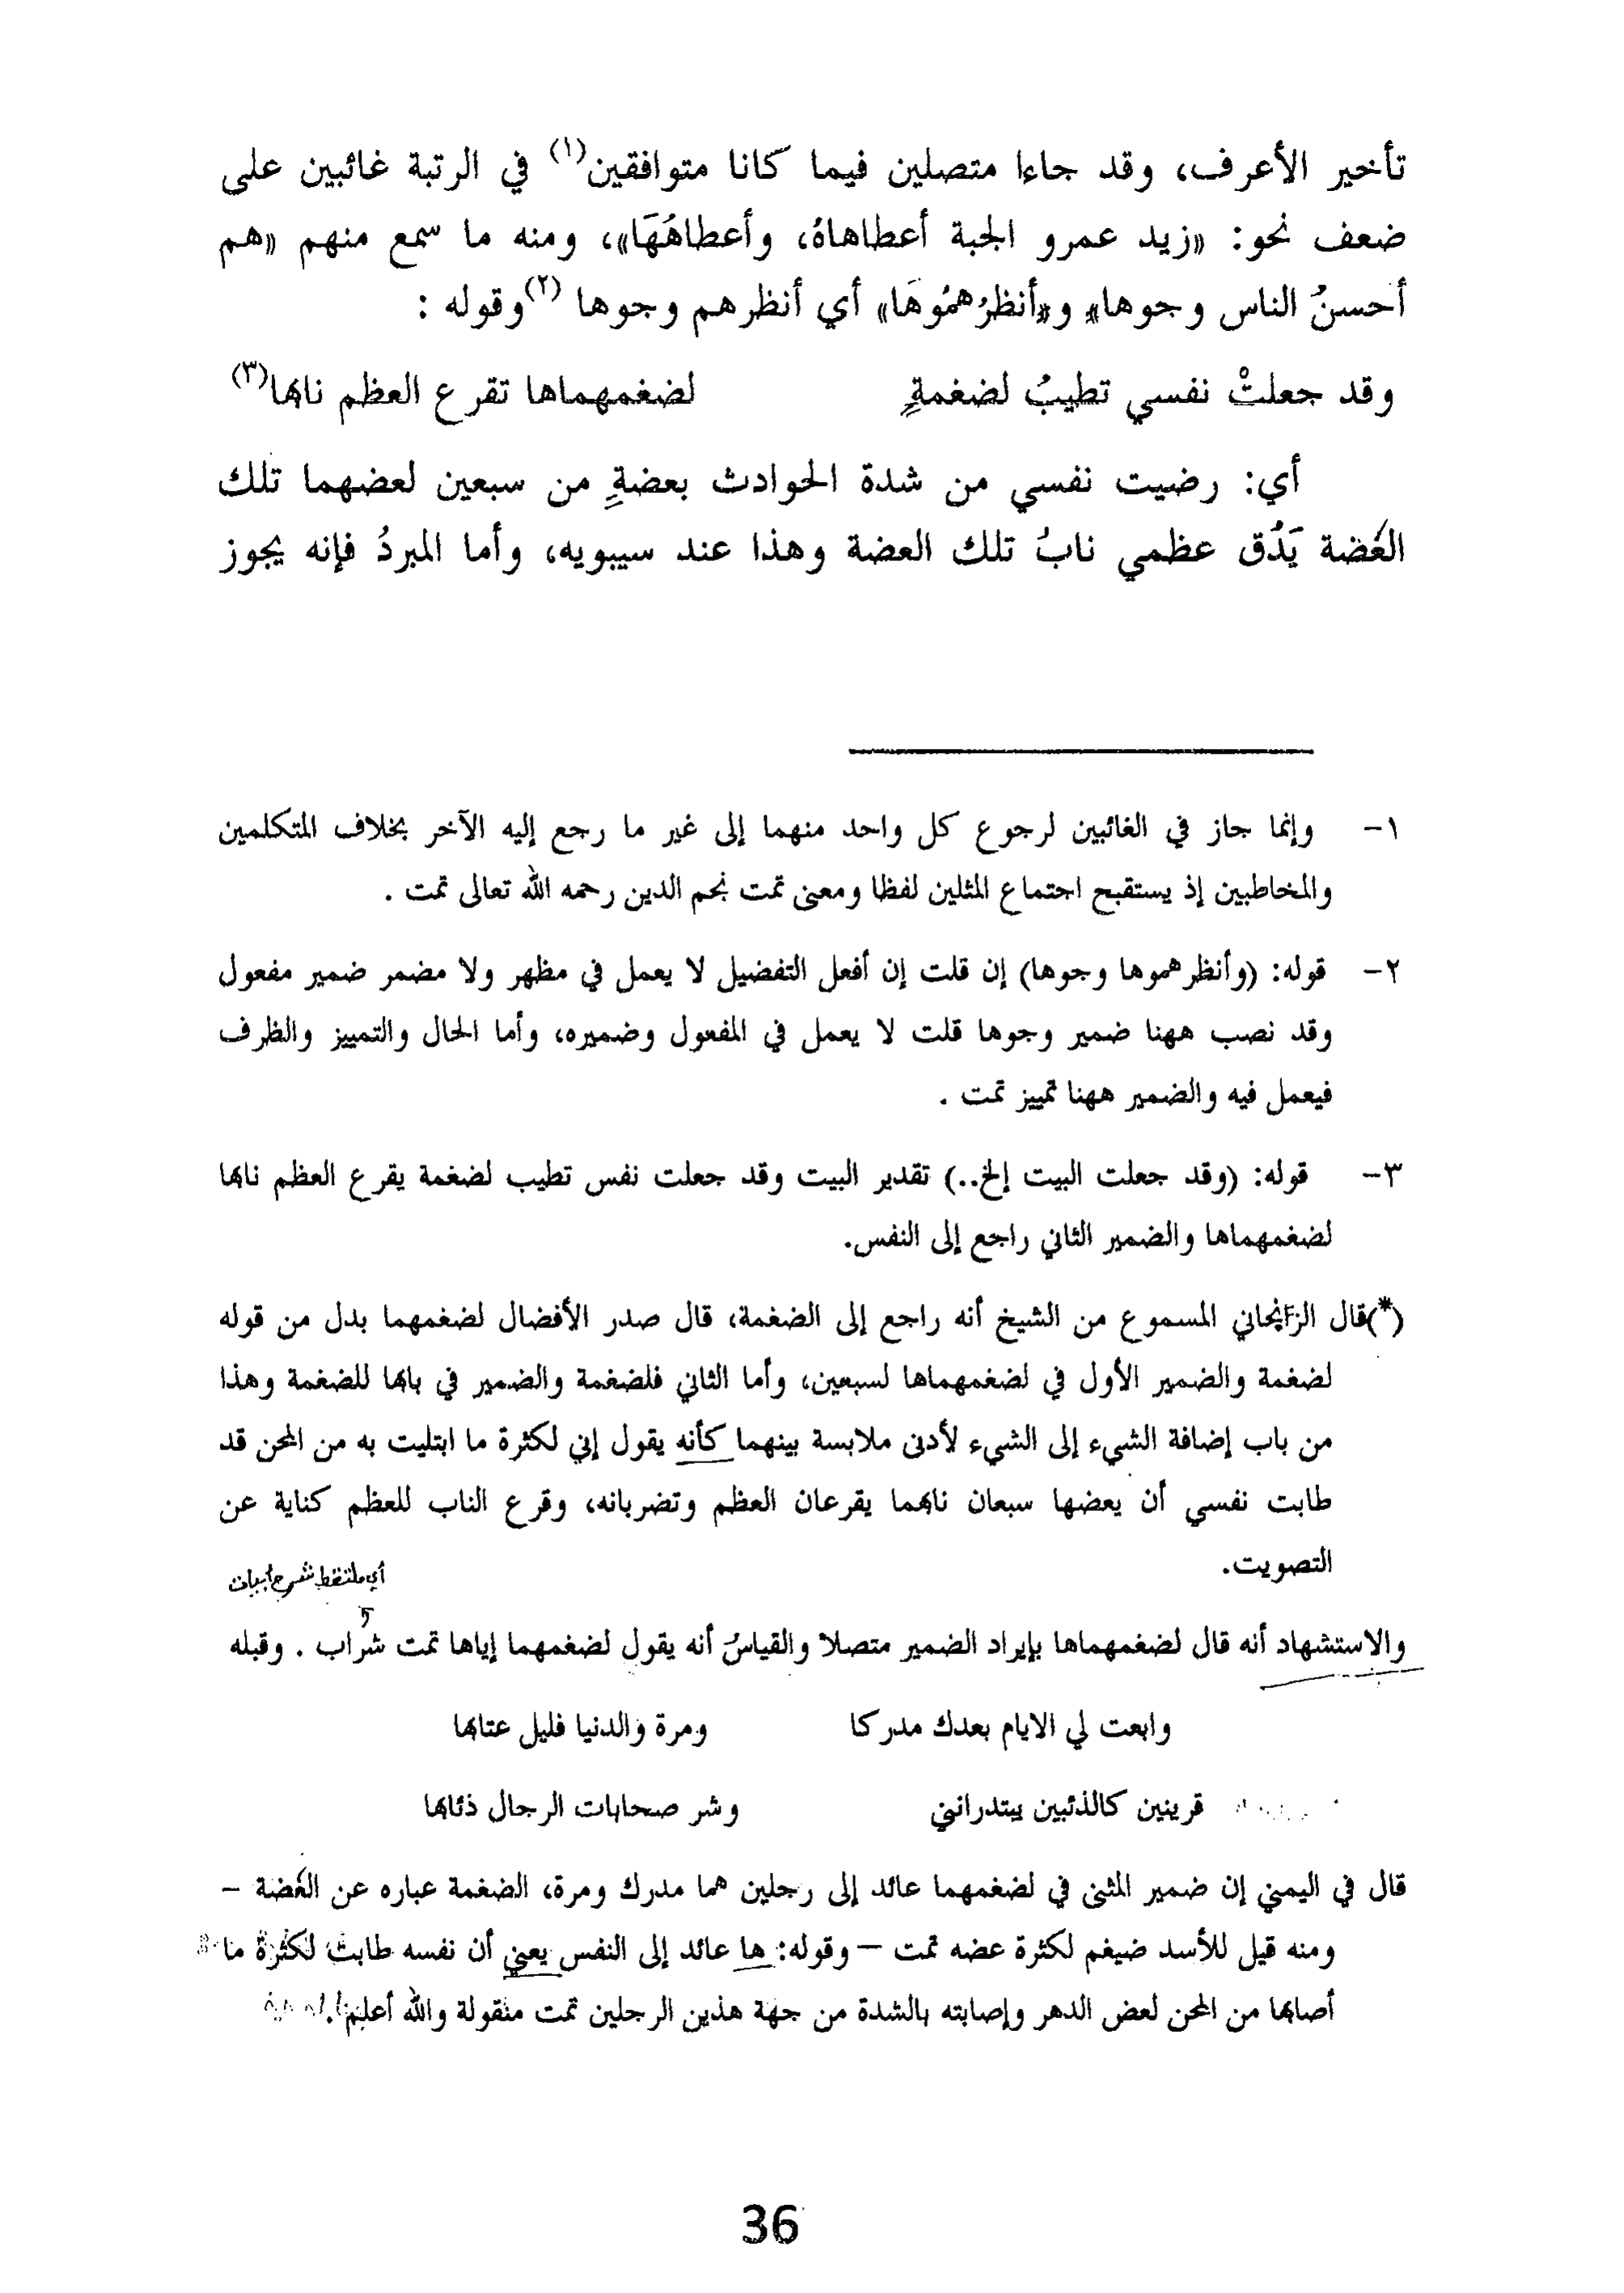 تأخير الأعرف، وقد جاءا متصلين فيما كانا متوافقين(١) في الرتبة غائبين على
ضعف نحو: «زيد عمرو الجبة أعطاهاهُ، وأعطاهُهَا»، ومنه ما سمع منهم «هم
أحسنُ الناس وجوها» و«أنظرُهمُوهَا» أي أنظرهم وجوها (٢)وقوله :
وقد جعلتْ نفسي تطيبُ لضغمةٍ لضغمهماها تقرع العظم نابها(٣)
أي: رضيت نفسي من شدة الحوادث بعضةٍ من سبعين لعضهما تلك
العَضة يَدُق عظمي نابُ تلك العضة وهذا عند سيبويه، وأما المبردُ فإنه يجوز
١- وإنما جاز في الغائبين لرجوع كل واحد منهما إلى غير ما رجع إليه الآخر بخلاف المتكلمين
والمخاطبين إذ يستقبح اجتماع المثلين لفظا ومعنى تمت نجم الدين رحمه الله تعالى تمت .
٢- قوله: (وأنظرهموها وجوها) إن قلت إن أفعل التفضيل لا يعمل في مظهر ولا مضمر ضمير مفعول
وقد نصب ههنا ضمير وجوها قلت لا يعمل في المفعول وضميره، وأما الحال والتمييز والظرف
فيعمل فيه والضمير ههنا تمييز تمت .
٣- قوله: (وقد جعلت البيت إلخ..) تقدير البيت وقد جعلت نفس تطيب لضغمة يقرع العظم نابها
لضغمهماها والضمير الثاني راجع إلى النفس.
(*)قال الزنجاني المسموع من الشيخ أنه راجع إلى الضغمة، قال صدر الأفضال لضغمهما بدل من قوله
لضغمة والضمير الأول في لضغمهماها لسبعين، وأما الثاني فلضغمة والضمير في بابها للضغمة وهذا
من باب إضافة الشيء إلى الشيء لأدنى ملابسة بينهما كأنه يقول إني لكثرة ما ابتليت به من المحن قد
طابت نفسي أن يعضها سبعان نابهما يقرعان العظم وتضربانه، وقرع الناب للعظم كناية عن
التصويت.
أي ملتقط شرح أبيات
والاستشهاد أنه قال لضغمهماها بإيراد الضمير متصلا والقياسُ أنه يقول لضغمهما إياها تمت شراب . وقبله
وابعت لي الايام بعدك مدركا ومرة والدنيا قليل عتابها
قرينين كالذئبين يبتدرانني وشر صحابات الرجال ذئابها
قال في اليمني إن ضمير المثنى في لضغمهما عائد إلى رجلين هما مدرك ومرة، الضغمة عباره عن العَضة –
ومنه قيل للأسد ضيغم لكثرة عضه تمت – وقوله: ها عائد إلى النفس يعني أن نفسه طابت لكثرة ما
أصابها من المحن لعض الدهر وإصابته بالشدة من جهة هذين الرجلين تمت منقولة والله أعلم.
36